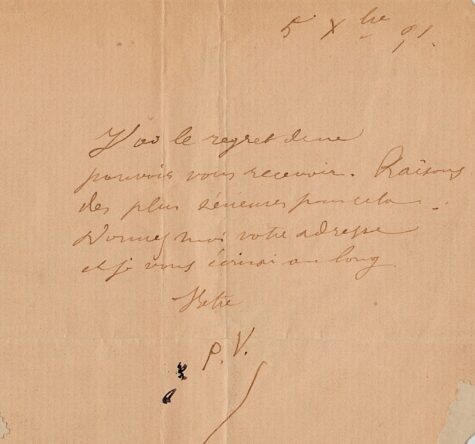 5 Xbre 91.
J'ai le regret de ne
pouvoir vous recevoir. Raisons
des plus sérieuses pour cela.
Donnez moi votre adresse
et je vous écrirai au long
Votre
P. V.